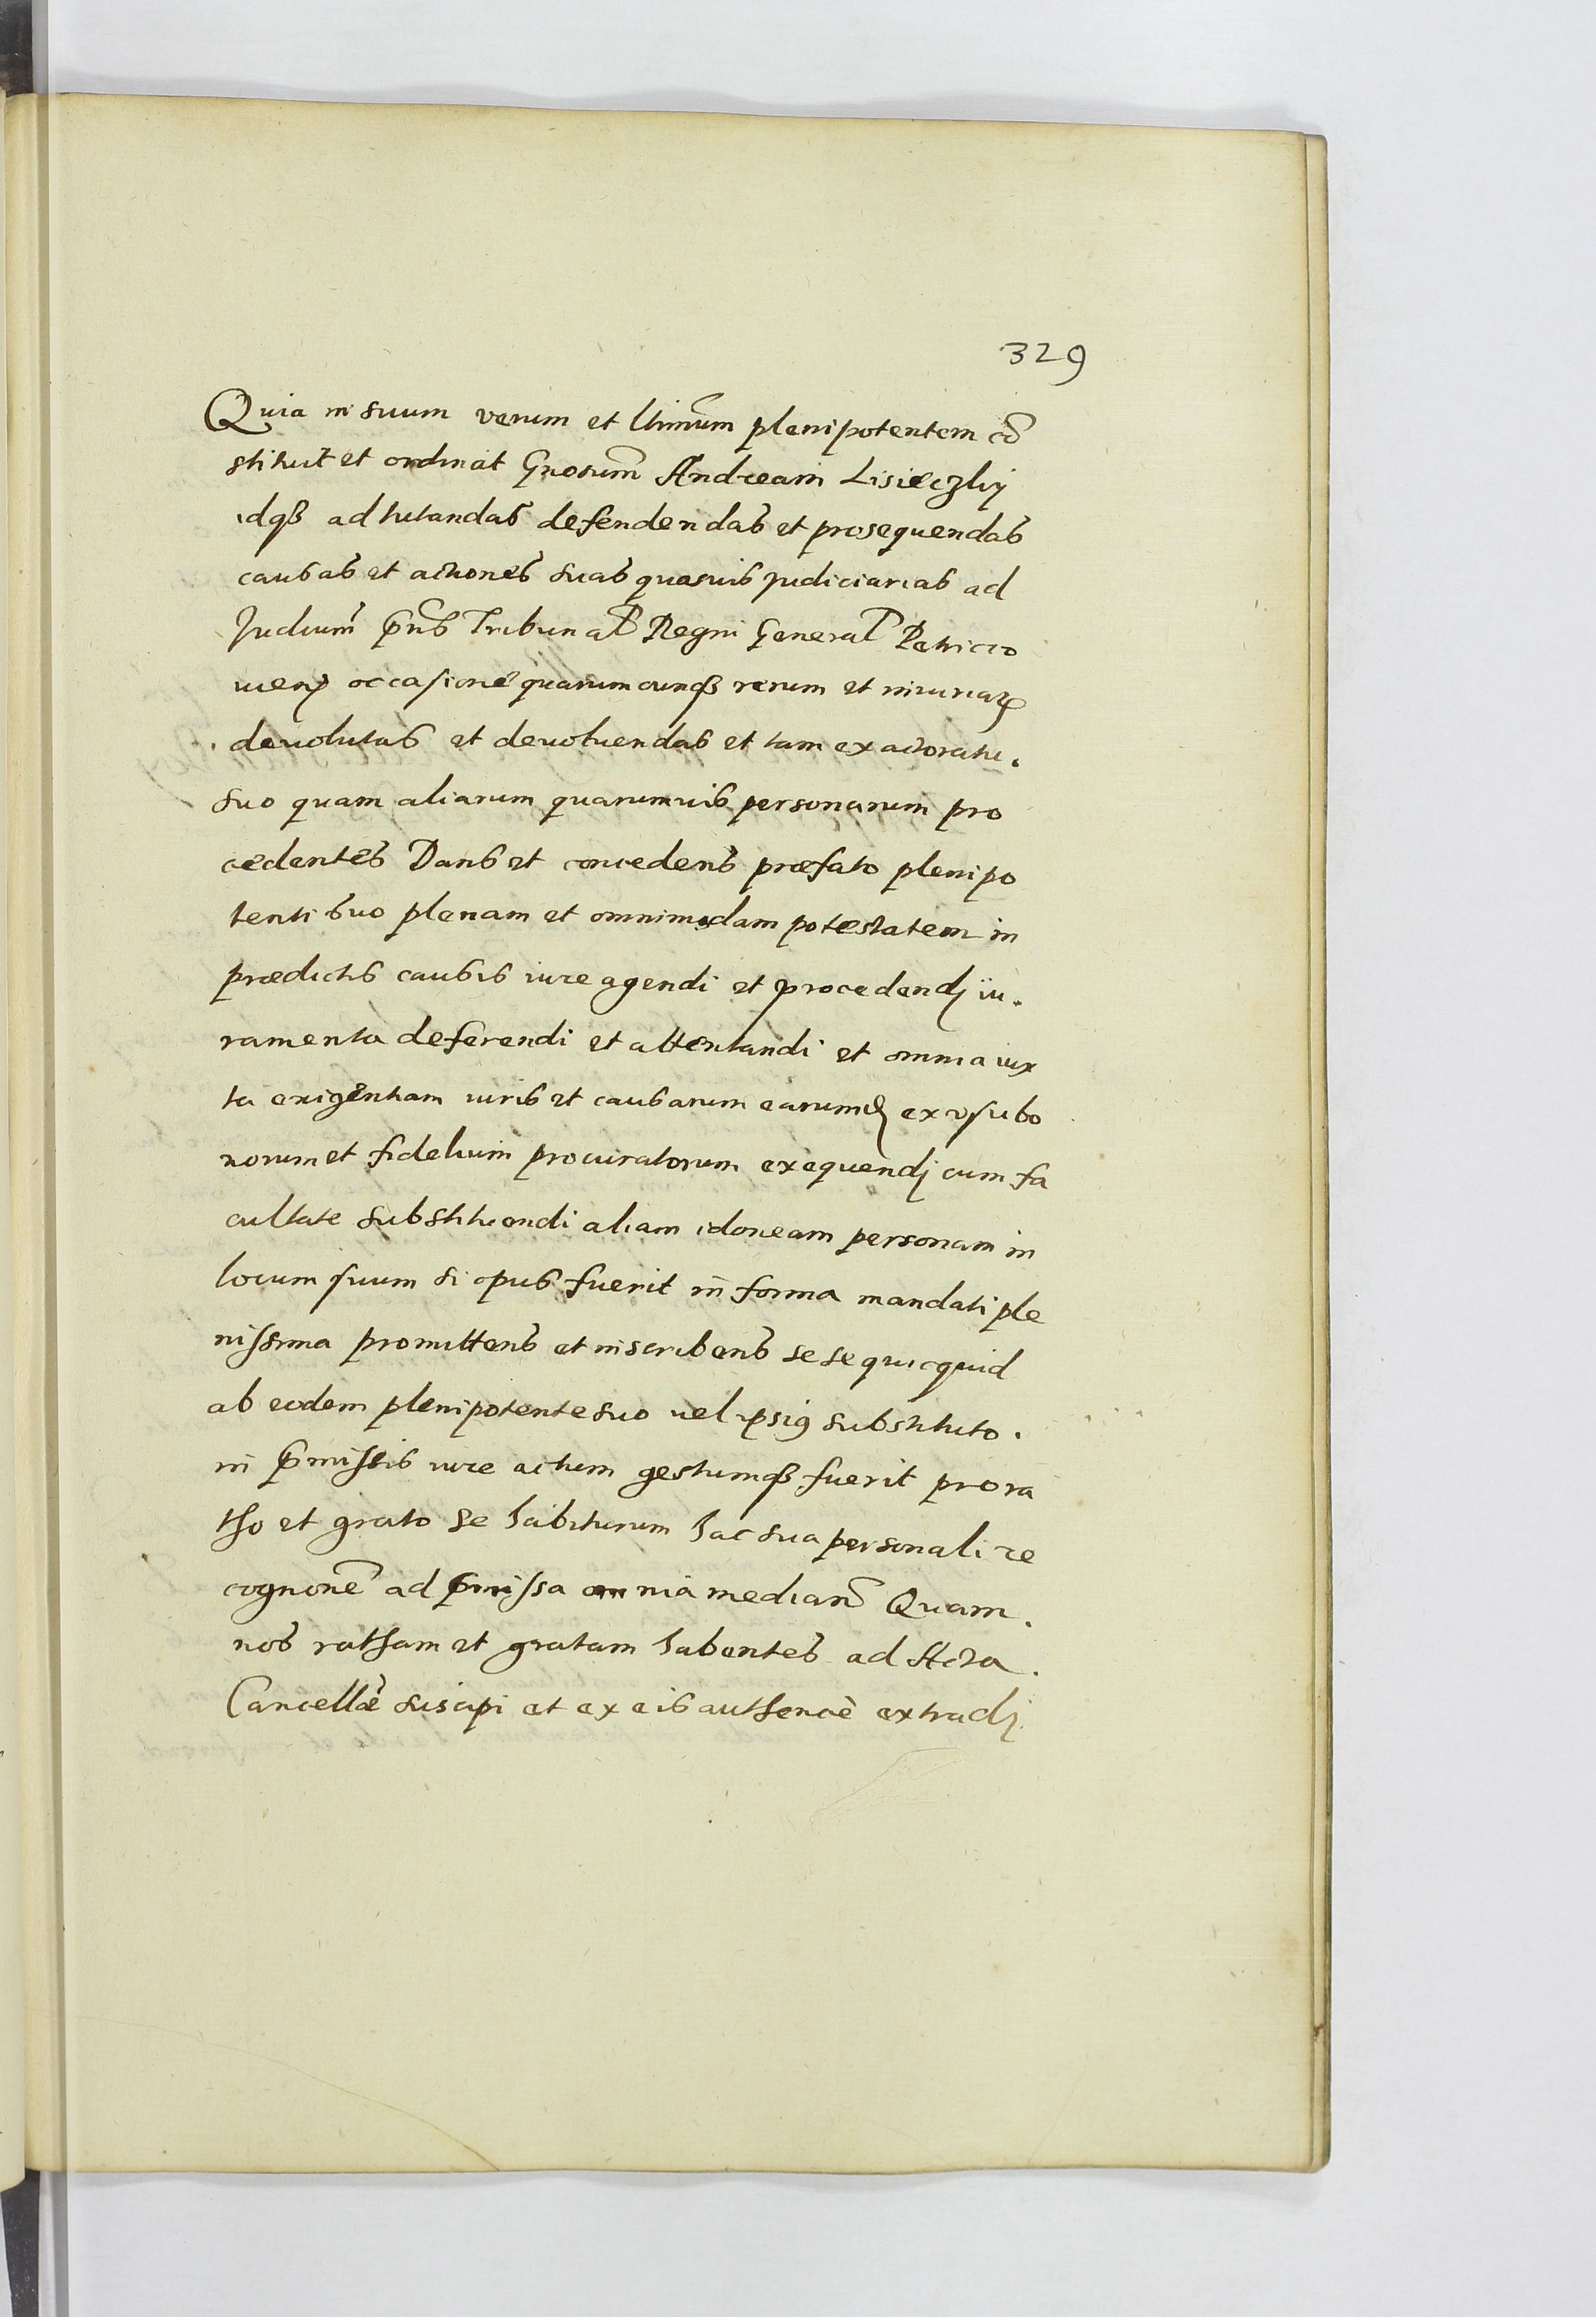 329
Quia in suum verum et ltimum plenipotentem cõ
stituit et ordinat Gnosum Andream Lisieczky
idqß ad tutandas defendendas et prosequendas
causas et actiones suas quasuis Judiciarias ad
Judium pñs Tribunal Regni General Petricio
uien occasione quarumcunqß rerum et iniuriarꝝ
deuolutas et deuoluendas et tam ex actoratu.
suo quam aliarum quarumuis personarum pro
cedentes Dans et concedens præfato plenipo
tenti suo plenam et omnimodam potestatem in
prædictis causis iure agendi et procedendj iu.
ramenta deferendi et attentandi et omnia iux
ta exigentiam iuris et causarum earumd ex vsu bo
norum et fidelium procuratorum exequendj cum fa
cultate substituendi aliam idoneam personam in
locum suum si opus fuerit in forma mandati ple
nissima promittens et inscribens sese quicquid
ab eodem plenipotente suo uel ipsig substituto.
in pmissis iure actum gestumqß fuerit pro ra
tho et grato se habiturum hac sua personali re
cognone ad pmissa omnia median Quam.
nos ratham et gratam habentes ad Acta.
Cancellæ suscipi et ex eis authence extradj